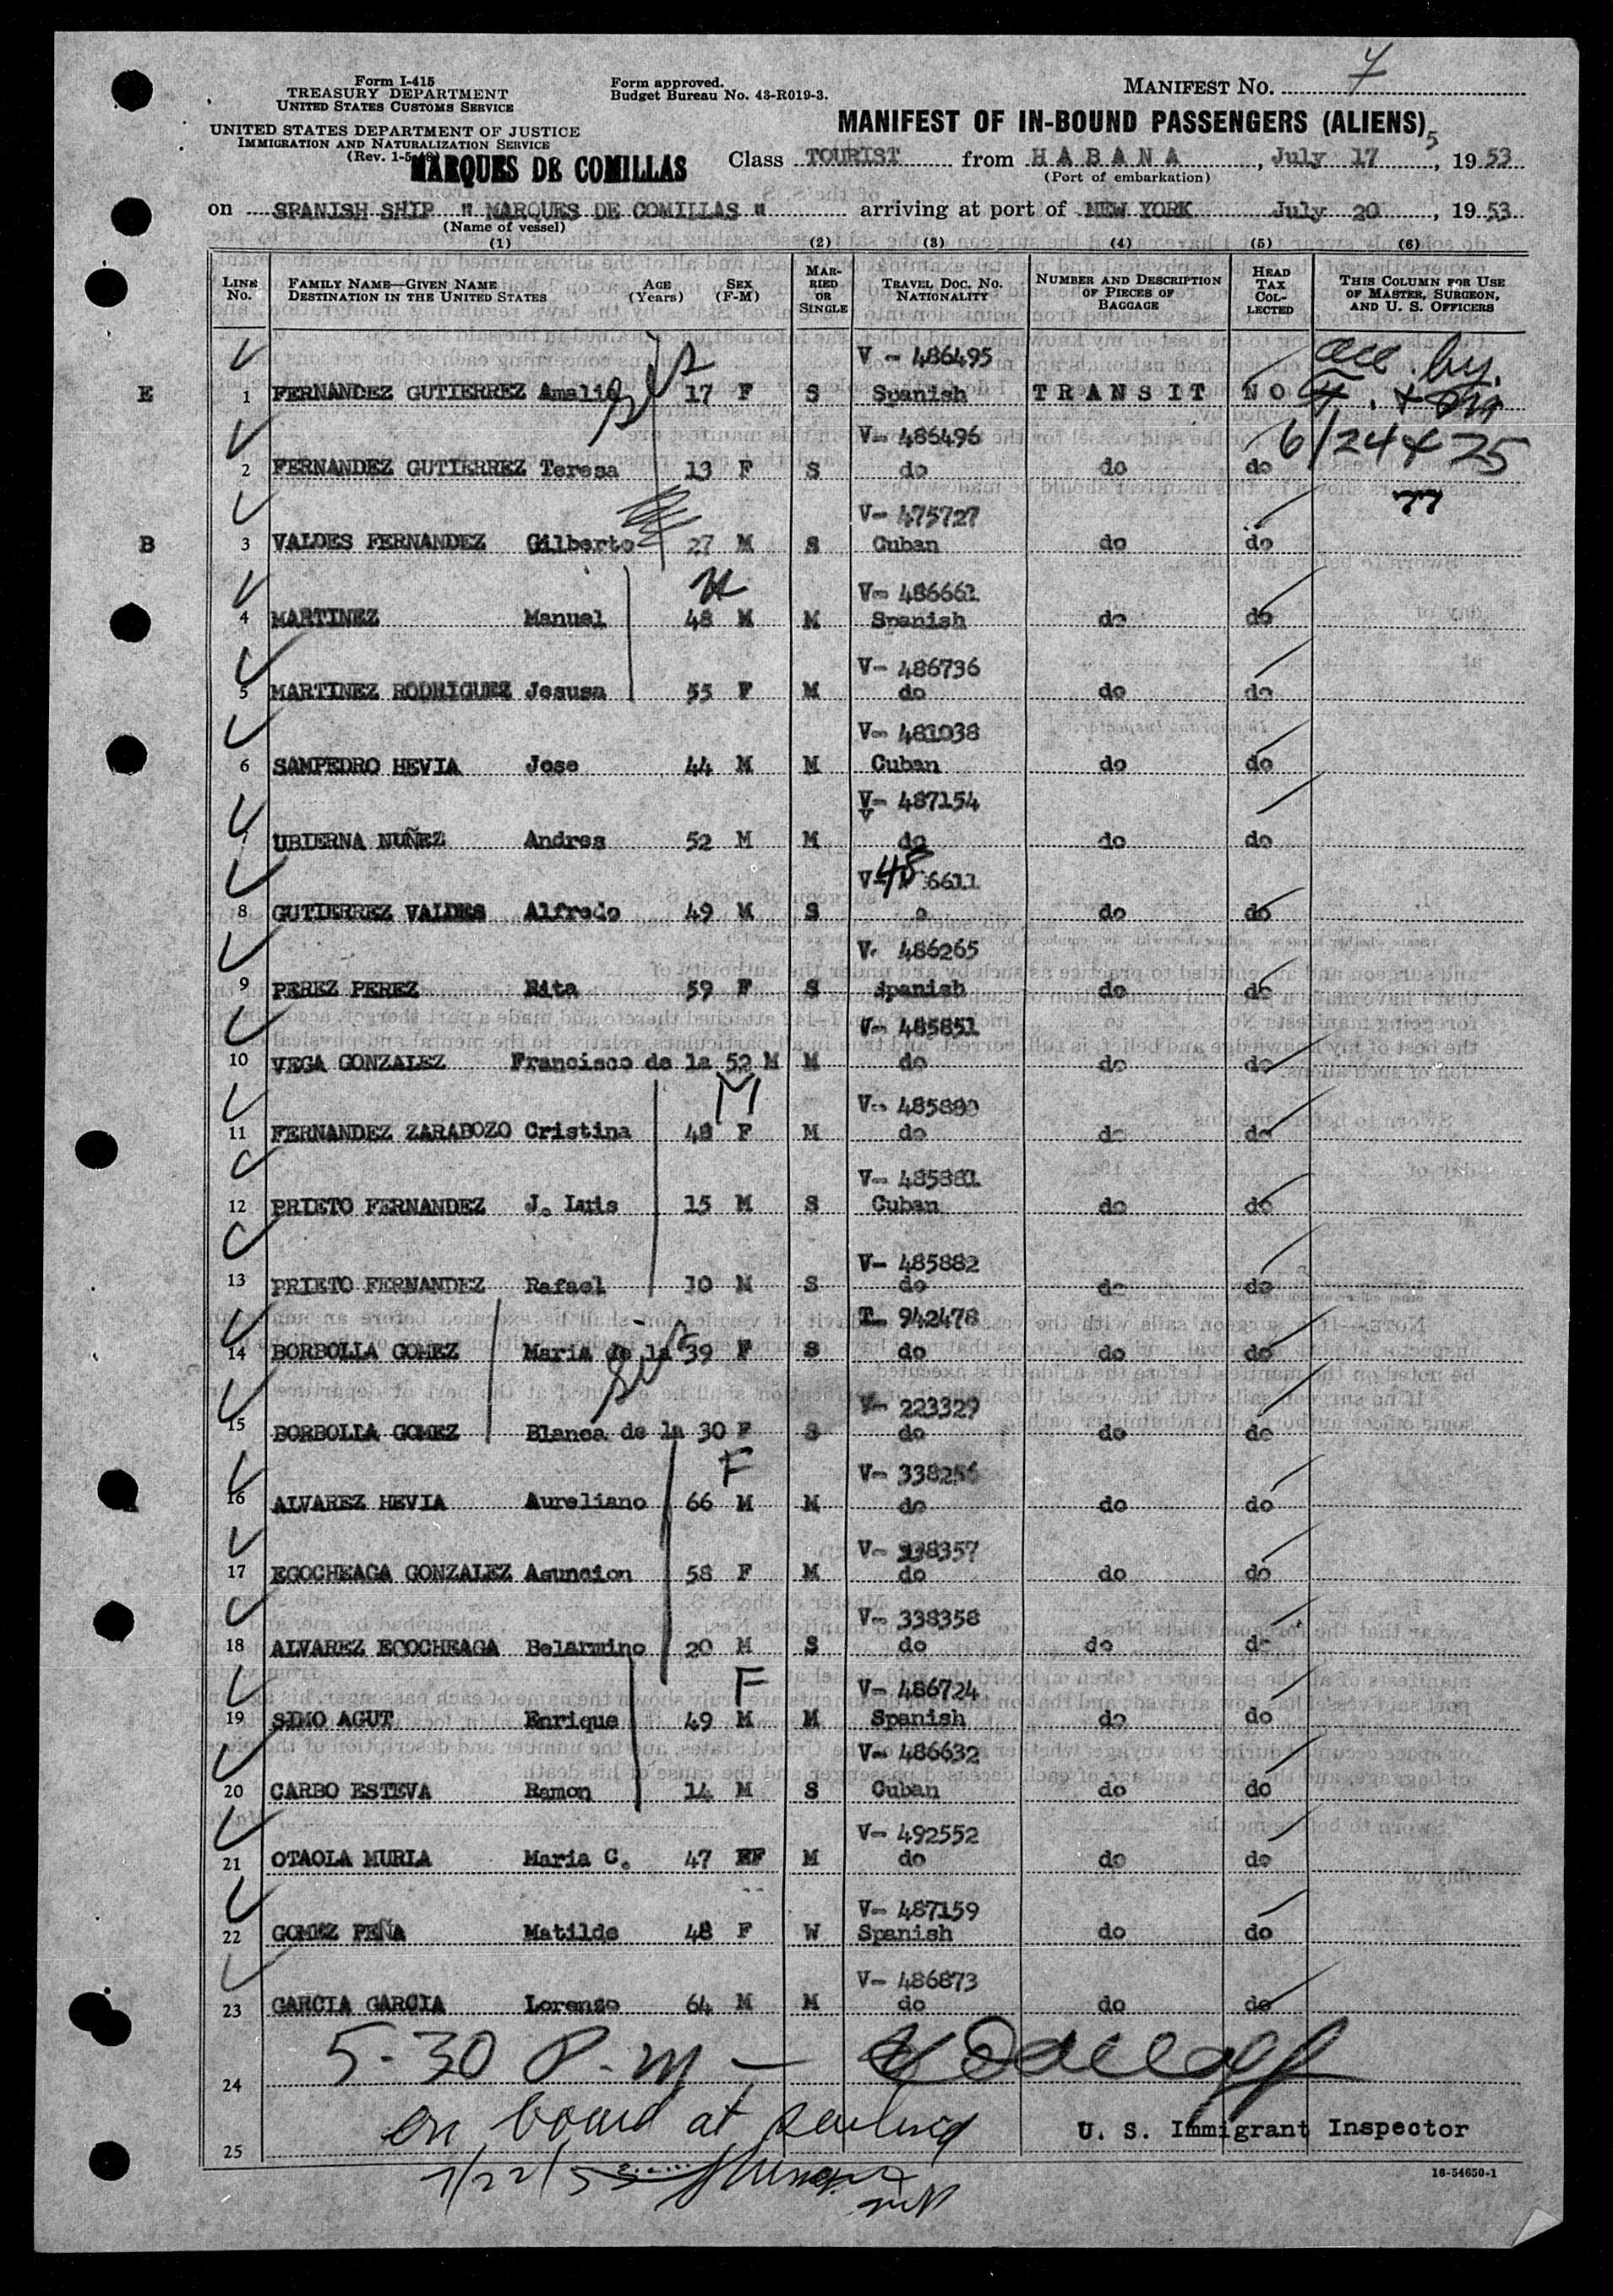 Form I-415
TREASURY DEPARTMENT
UNITED STATES CUSTOMS SERVICE
Form approved.
Budget Bureau No. 43-R019-3.
MANIFEST NO. 7
UNITED STATES DEPARTMENT OF JUSTICE
IMMIGRATION AND NATURALIZATION SERVICE
MANIFEST OF IN-BOUND PASSENGERS (ALIENS)
MARQUES DE COMILLAS
Class TOURIST from HABANA, July 17, 1953
(Port of embarkation)
on SPANISH SHIP " MARQUES DE COMILLAS " arriving at port of NEW YORK July 20, 1953
(Name of vessel)
(1) (2) (3) (4) (5) (6)
LINE No. FAMILY NAME—GIVEN NAME DESTINATION IN THE UNITED STATES AGE (Years) SEX (F-M) MARRIED OR SINGLE TRAVEL DOC. NO. NATIONALITY NUMBER AND DESCRIPTION OF PIECES OF BAGGAGE HEAD TAX COLLECTED THIS COLUMN FOR USE OF MASTER, SURGEON, AND U. S. OFFICERS
V - 486495
E 1 FERNANDEZ GUTIERREZ Amalia 17 F S Spanish TRANSIT NO
V- 486496 6/24 + 25
2 FERNANDEZ GUTIERREZ Teresa 13 F S do do do
V- 475727
B 3 VALDES FERNANDEZ Gilberto 27 M S Cuban do do
V- 486661
4 MARTINEZ Manuel 48 M M Spanish do do
V- 486736
5 MARTINEZ RODRIGUEZ Jesusa 55 F M do do do
V- 481038
6 SAMPEDRO HEVIA Jose 44 M M Cuban do do
V- 487154
7 UBIERNA NUÑEZ Andres 52 M M do do do
V- 486611
8 GUTIERREZ VALDES Alfredo 49 M S do do
V- 486265
9 PEREZ PEREZ Rita 59 F S Spanish do do
V- 485851
10 VEGA GONZALEZ Francisco de la 52 M M do do do
M
V- 485880
11 FERNANDEZ ZARABOZO Cristina 48 F M do do do
V- 485881
12 PRIETO FERNANDEZ J. Luis 15 M S Cuban do do
V- 485882
13 PRIETO FERNANDEZ Rafael 10 M S do do do
T- 942478
14 BORBOLLA GOMEZ Maria de la 39 F S do do do
V- 223329
15 BORBOLLA GOMEZ Blanca de la 30 F S do do do
F
V- 338256
16 ALVAREZ HEVIA Aureliano 66 M M do do do
V- 338357
17 EGOCHEAGA GONZALEZ Asuncion 58 F M do do do
V- 338358
18 ALVAREZ ECOCHEAGA Belarmino 20 M S do do do
F
V- 486724
19 SIMO AGUT Enrique 49 M M Spanish do do
V- 486632
20 CARBO ESTEVA Ramon 14 M S Cuban do do
V- 492552
21 OTAOLA MURIA Maria C. 47 F M do do do
V- 487159
22 GOMEZ PEÑA Matilde 48 F W Spanish do do
V- 486873
23 GARCIA GARCIA Lorenzo 64 M M do do do
24 5-30 P.M —
on board at sailing
U. S. Immigrant Inspector
25
7/22/53
16-54650-1